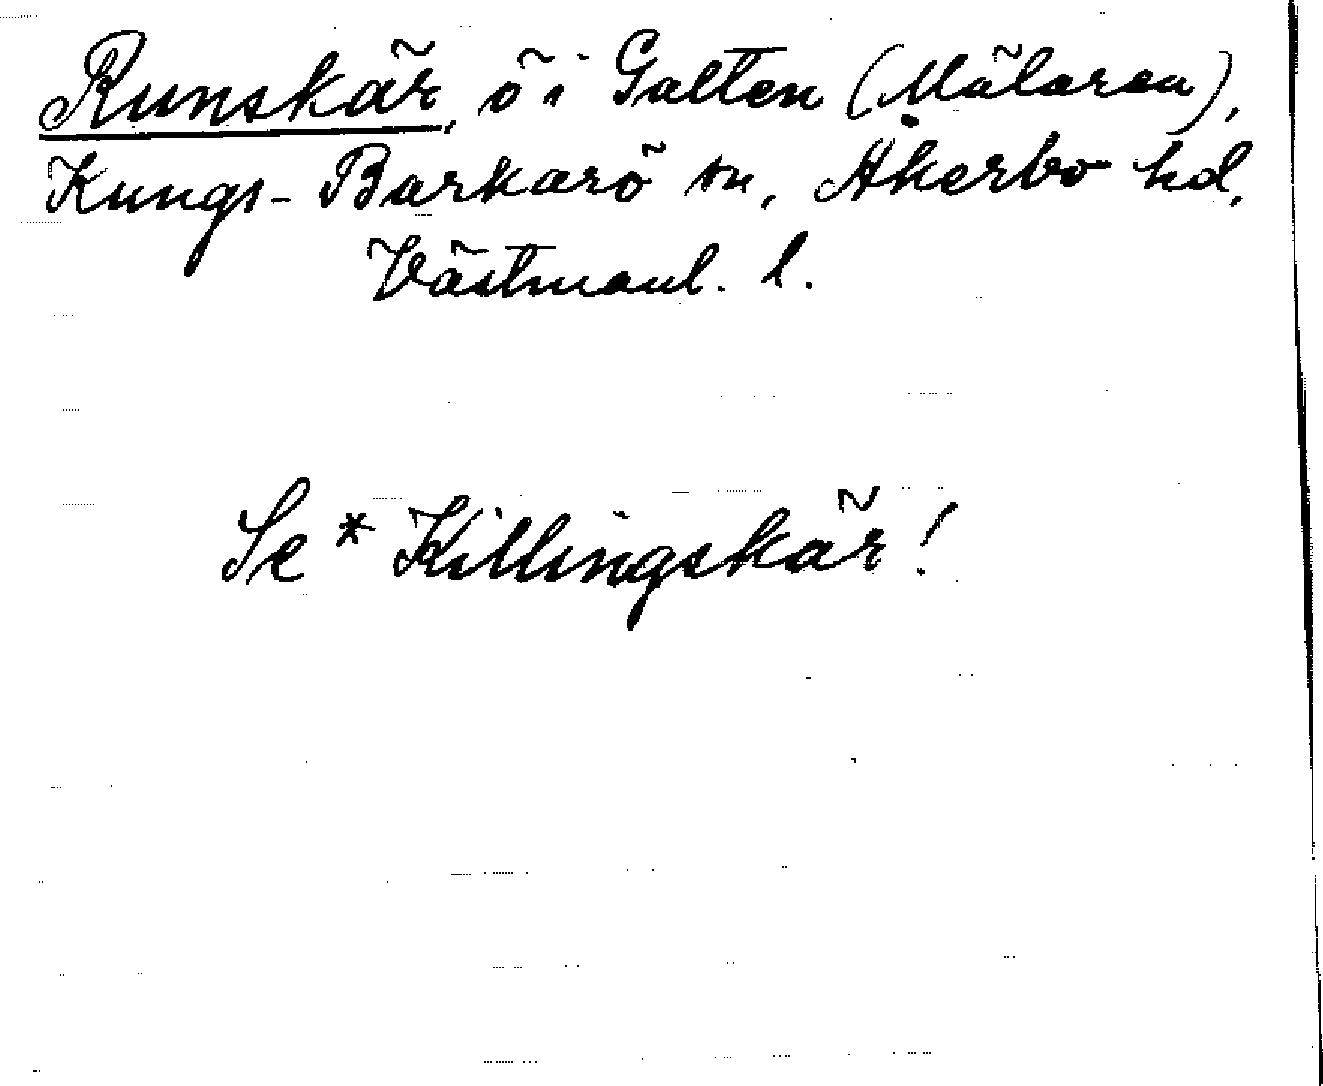 Runskär, ö i Galten (Mälaren),
Kungs-Barkarö sn, Åkerbo hd,
Västmanl. l.
Se * Killingskär!